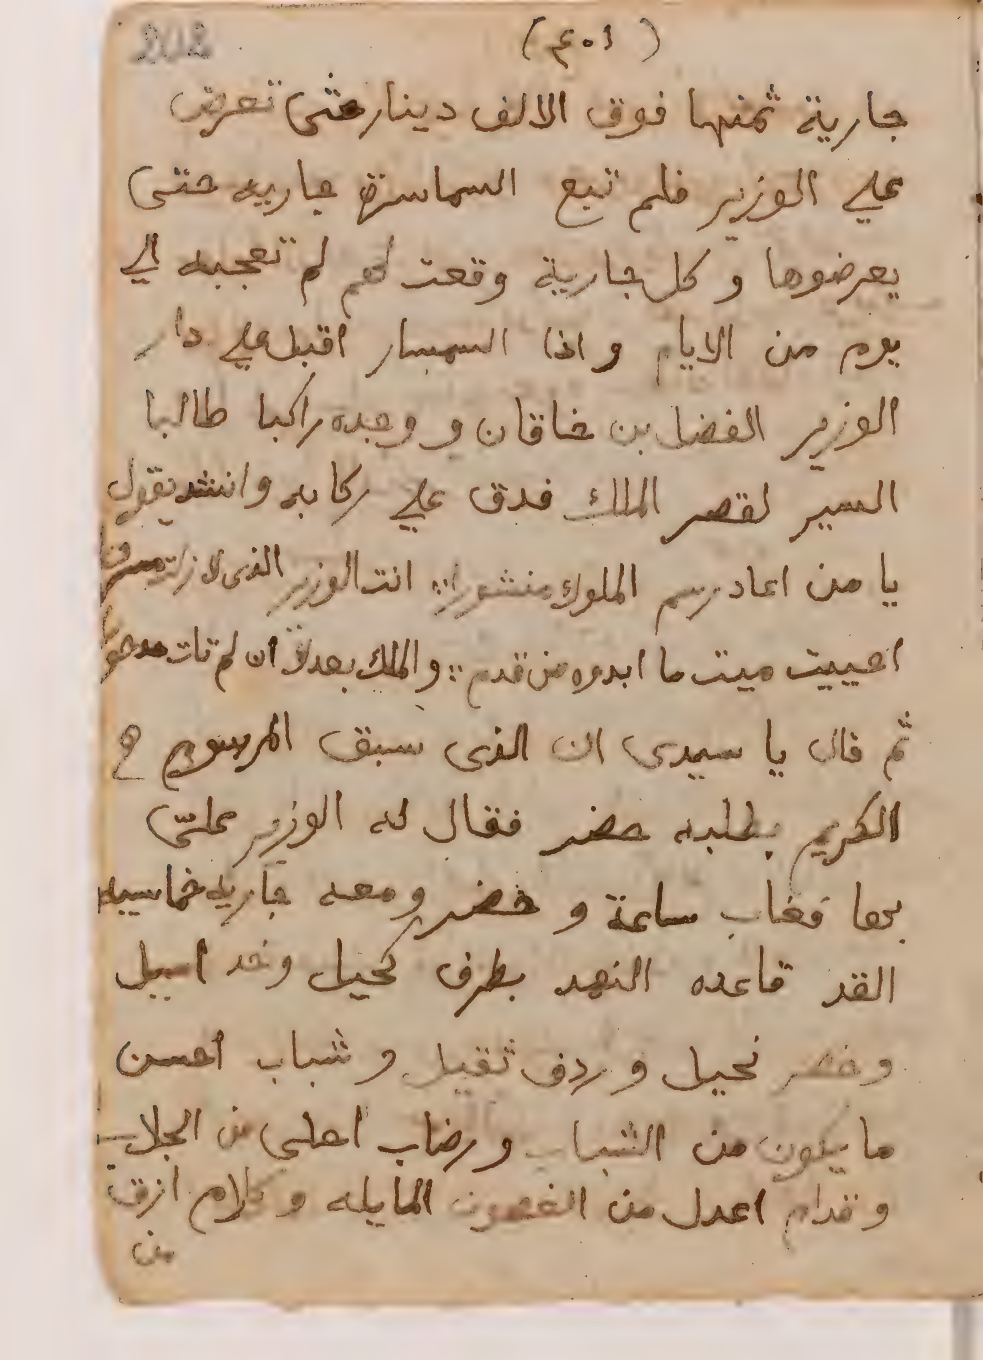 جارية ثمنها فوق الالف دينار حتى تعرض
علي الوزير فلم تبع السماسرة جاريه حتى
يعرضوها و كل جارية وقعت لهم لم تعجبه الي
يوم من الايام و اذا السمسار اقبل علي دار
الوزير الفضل بن خاقان و وجده راكبا طالبا
السير لقصر الملك فدق علي ركابه وانشد يقول
يا من اعاد رسم الملوك منشورا :: انت الوزير الذى لا زلت
احييت ميت ما من قدم :: و الملك بعدك ان لم تات
ثم قال يا سيدى ان الذى سبق المرسوم
الكريم بطلبه حضر فقال له الوزير علتى
بها فغاب ساعة و حضر و معه جاريه خماسيه
القد قاعده النهد بطرف كحيل وخد اسيل
وخصر نحيل و ردف ثقيل و شباب احسن
ما يكون من الشباب و رضاب احلى من الجلاب
و قدام اعدل من الغصون المايله و كلام ارق
من